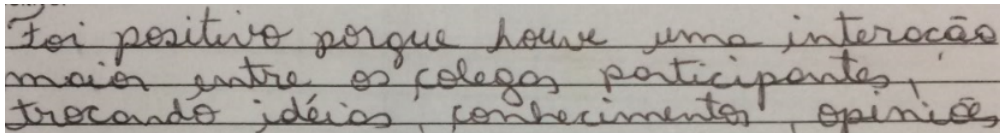 Foi positivo porque houve uma interação
maior entre os colegas participantes,
trocando idéias, conhecimentos, opiniões